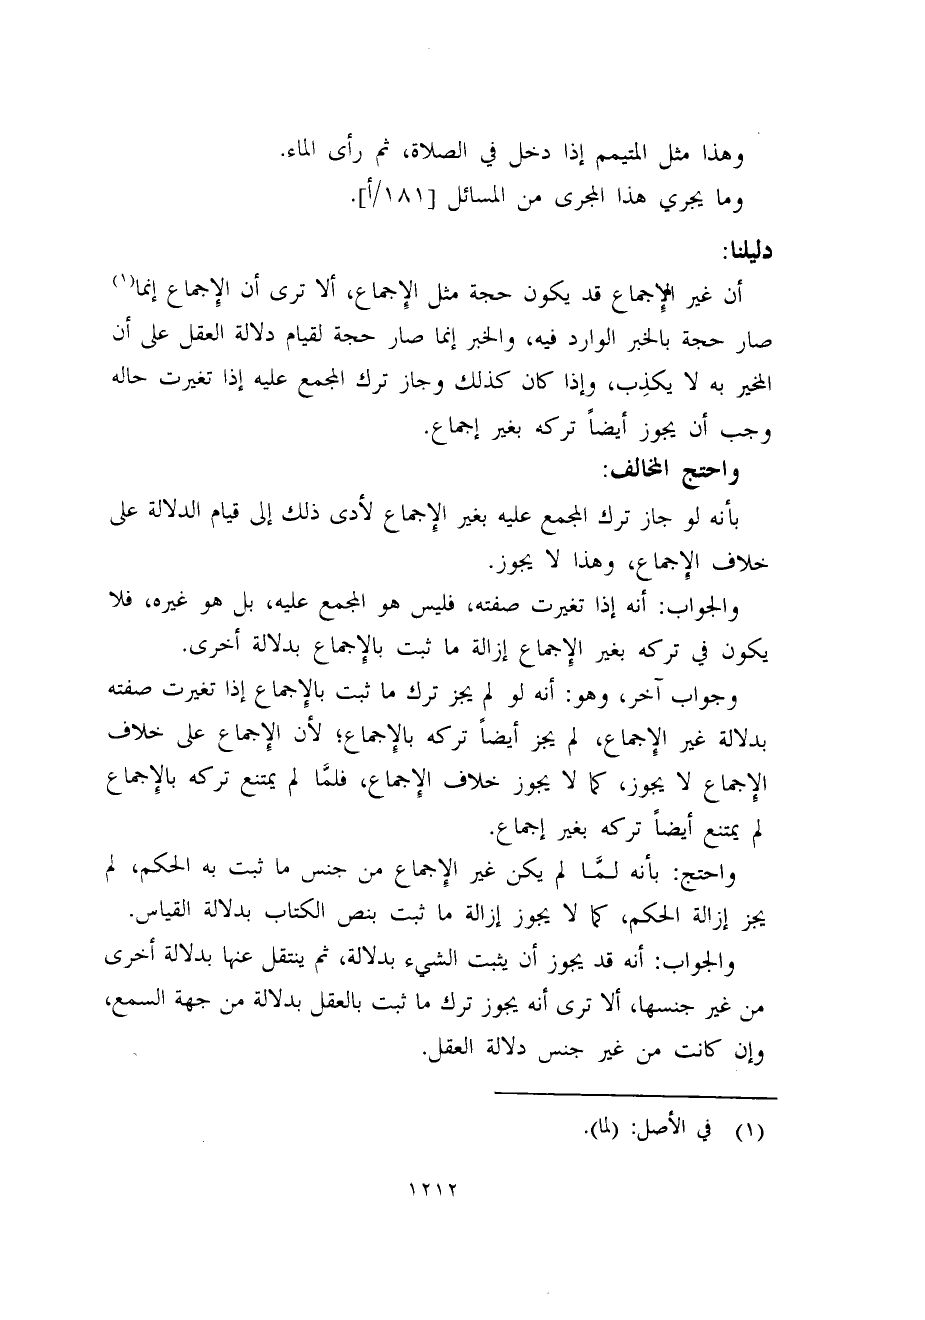 وهذا مثل المتيمم إذا دخل في الصلاة، ثم رأى الماء.
وما يجري هذا المجرى من المسائل [١٨١/أ].
دليلنا:
أن غير الإجماع قد يكون حجة مثل الإجماع، ألا ترى أن الإجماع إنما(١)
صار حجة بالخبر الوارد فيه، والخبر إنما صار حجة لقيام دلالة العقل على أن
المخبر به لا يكذِب، وإذا كان كذلك وجاز ترك المجمع عليه إذا تغيرت حاله
وجب أن يجوز أيضاً تركه بغير إجماع.
واحتج المخالف:
بأنه لو جاز ترك المجمع عليه بغير الإجماع لأدى ذلك إلى قيام الدلالة على
خلاف الإجماع، وهذا لا يجوز.
والجواب: أنه إذا تغيرت صفته، فليس هو المجمع عليه، بل هو غيره، فلا
يكون في تركه بغير الإجماع إزالة ما ثبت بالإجماع بدلالة أخرى.
وجواب آخر، وهو: أنه لو لم يجز ترك ما ثبت بالإجماع إذا تغيرت صفته
بدلالة غير الإجماع، لم يجز أيضاً تركه بالإجماع؛ لأن الإجماع على خلاف
الإجماع لا يجوز، كما لا يجوز خلاف الإجماع، فلمَّا لم يمتنع تركه بالإجماع
لم يمتنع أيضاً تركه بغير إجماع.
واحتج: بأنه لـمَّـا لم يكن غير الإجماع من جنس ما ثبت به الحكم، لم
يجز إزالة الحكم، كما لا يجوز إزالة ما ثبت بنص الكتاب بدلالة القياس.
والجواب: أنه قد يجوز أن يثبت الشيء بدلالة، ثم ينتقل عنها بدلالة أخرى
من غير جنسها، ألا ترى أنه يجوز ترك ما ثبت بالعقل بدلالة من جهة السمع،
وإن كانت من غير جنس دلالة العقل.
(١) في الأصل: (لما).
١٢١٢